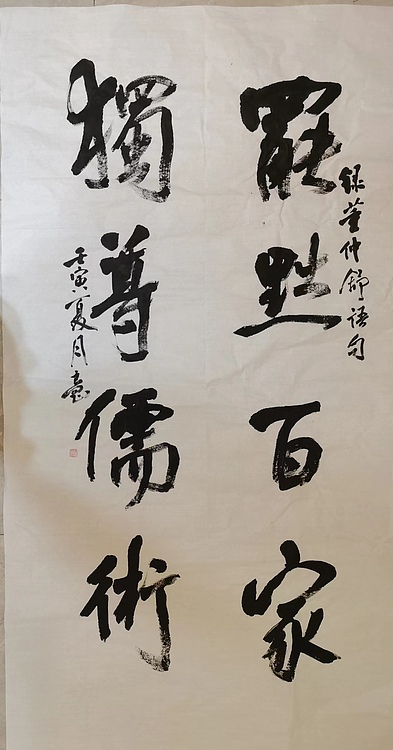 録董仲舒语句
罷黜百家
獨尊儒術
壬寅夏月